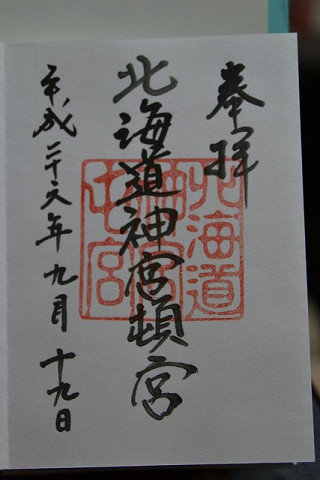 奉拝
北海道神宮頓宮
平成二十六年九月十九日
北海道
神宮
宮